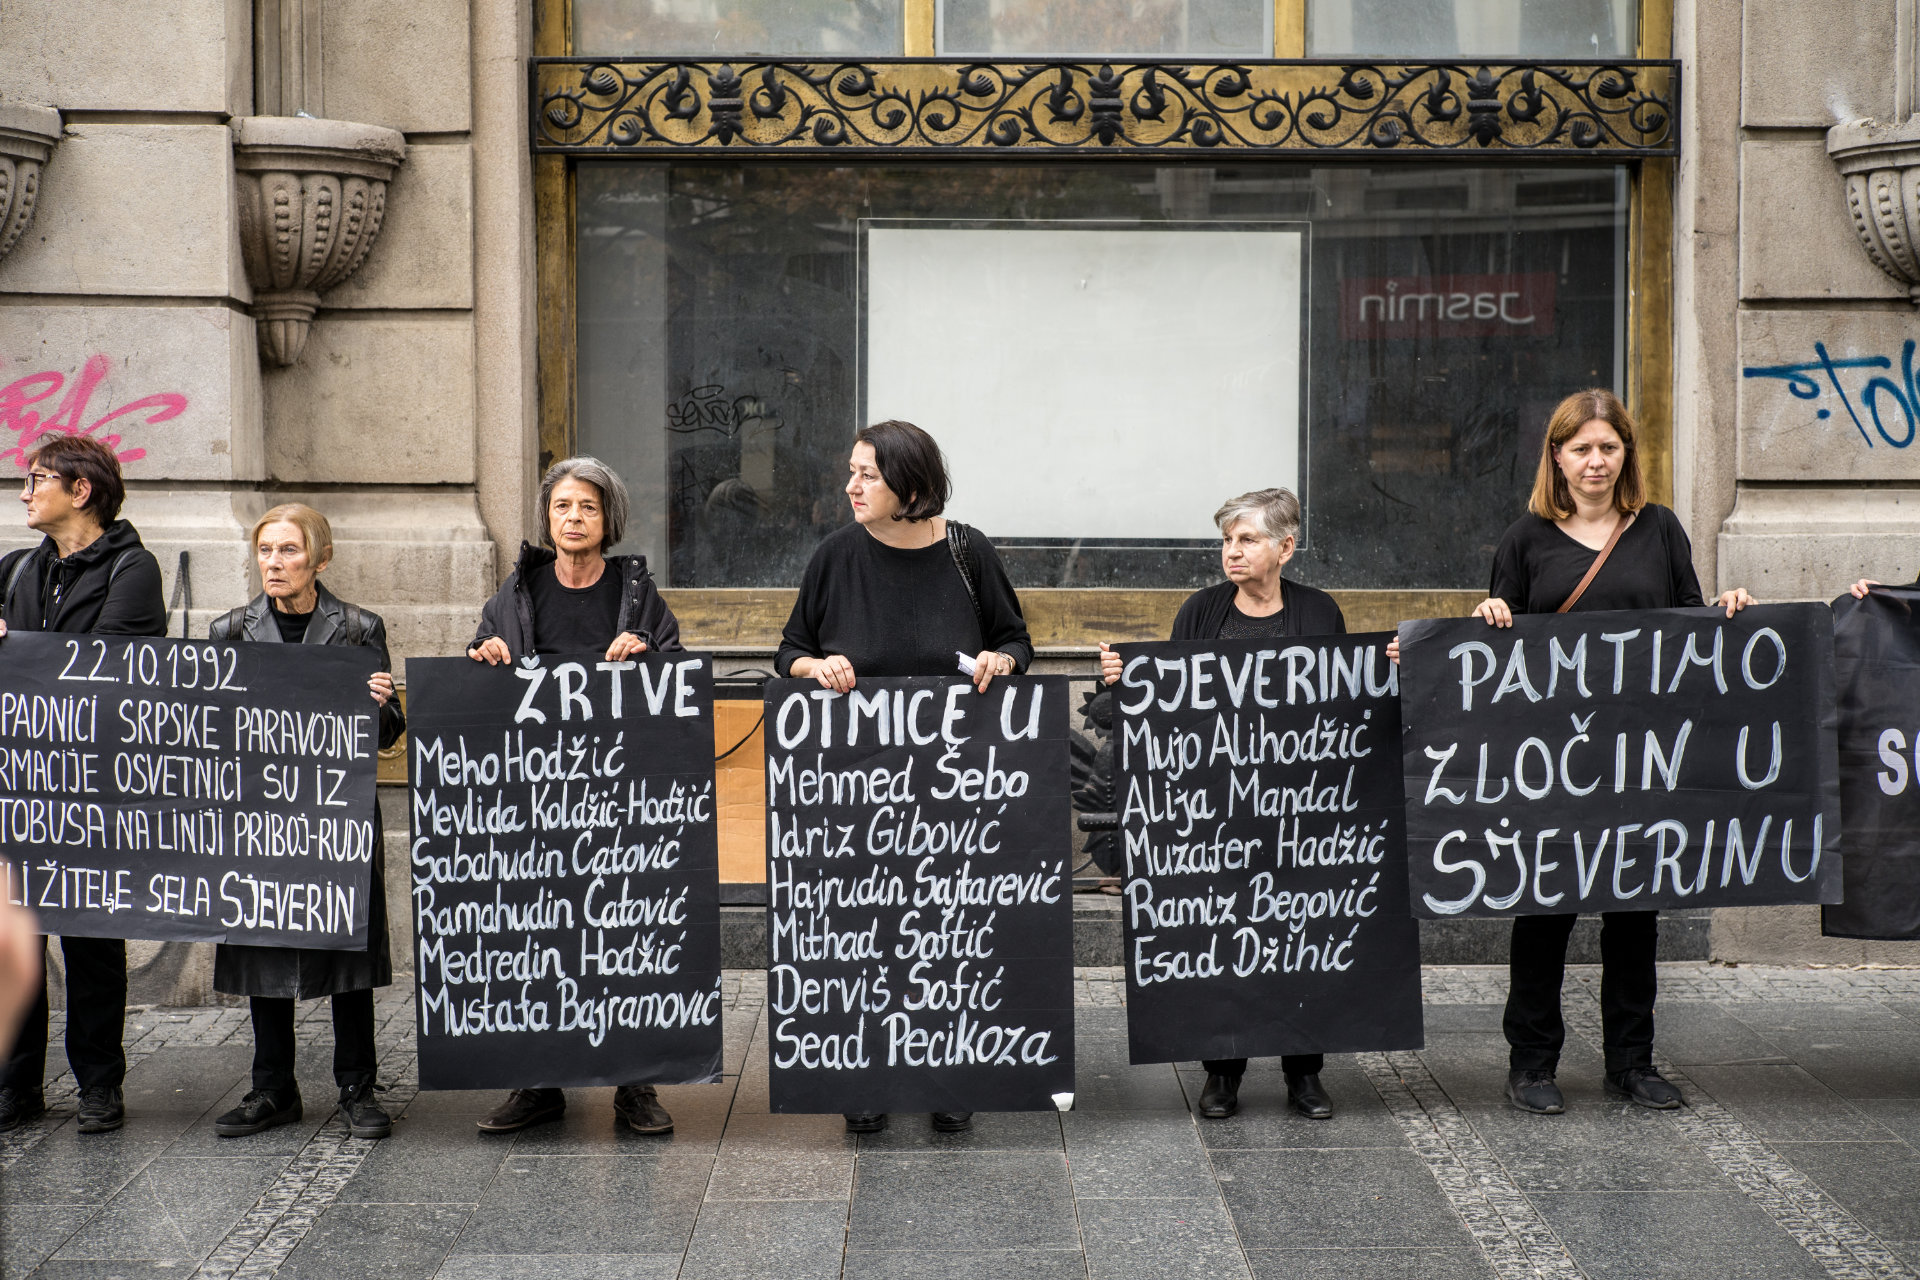 22.10.1992.
SRPSKE PARAVOJNE
OSVETNICI SU IZ
NA LINIJI PRIBOJ-RUDO
ŽITELJE SELA SJEVERIN
ŽRTVE
Meho Hodžić
Mevlida Koldžić-Hodžić
Sabahudin Ćatović
Ramahudin Ćatović
Medredin Hodžić
Mustafa Bajramović
OTMICE U
Mehmed Šebo
Idriz Gibović
Hajrudin Sajtarević
Mithad Softić
Derviš Sofić
Sead Pecikoza
SJEVERINU
Mujo Alihodžić
Alija Mandal
Muzafer Hadžić
Ramiz Begović
Esad Džihić
PAMTIMO
ZLOČIN U
SJEVERINU
Jasmin